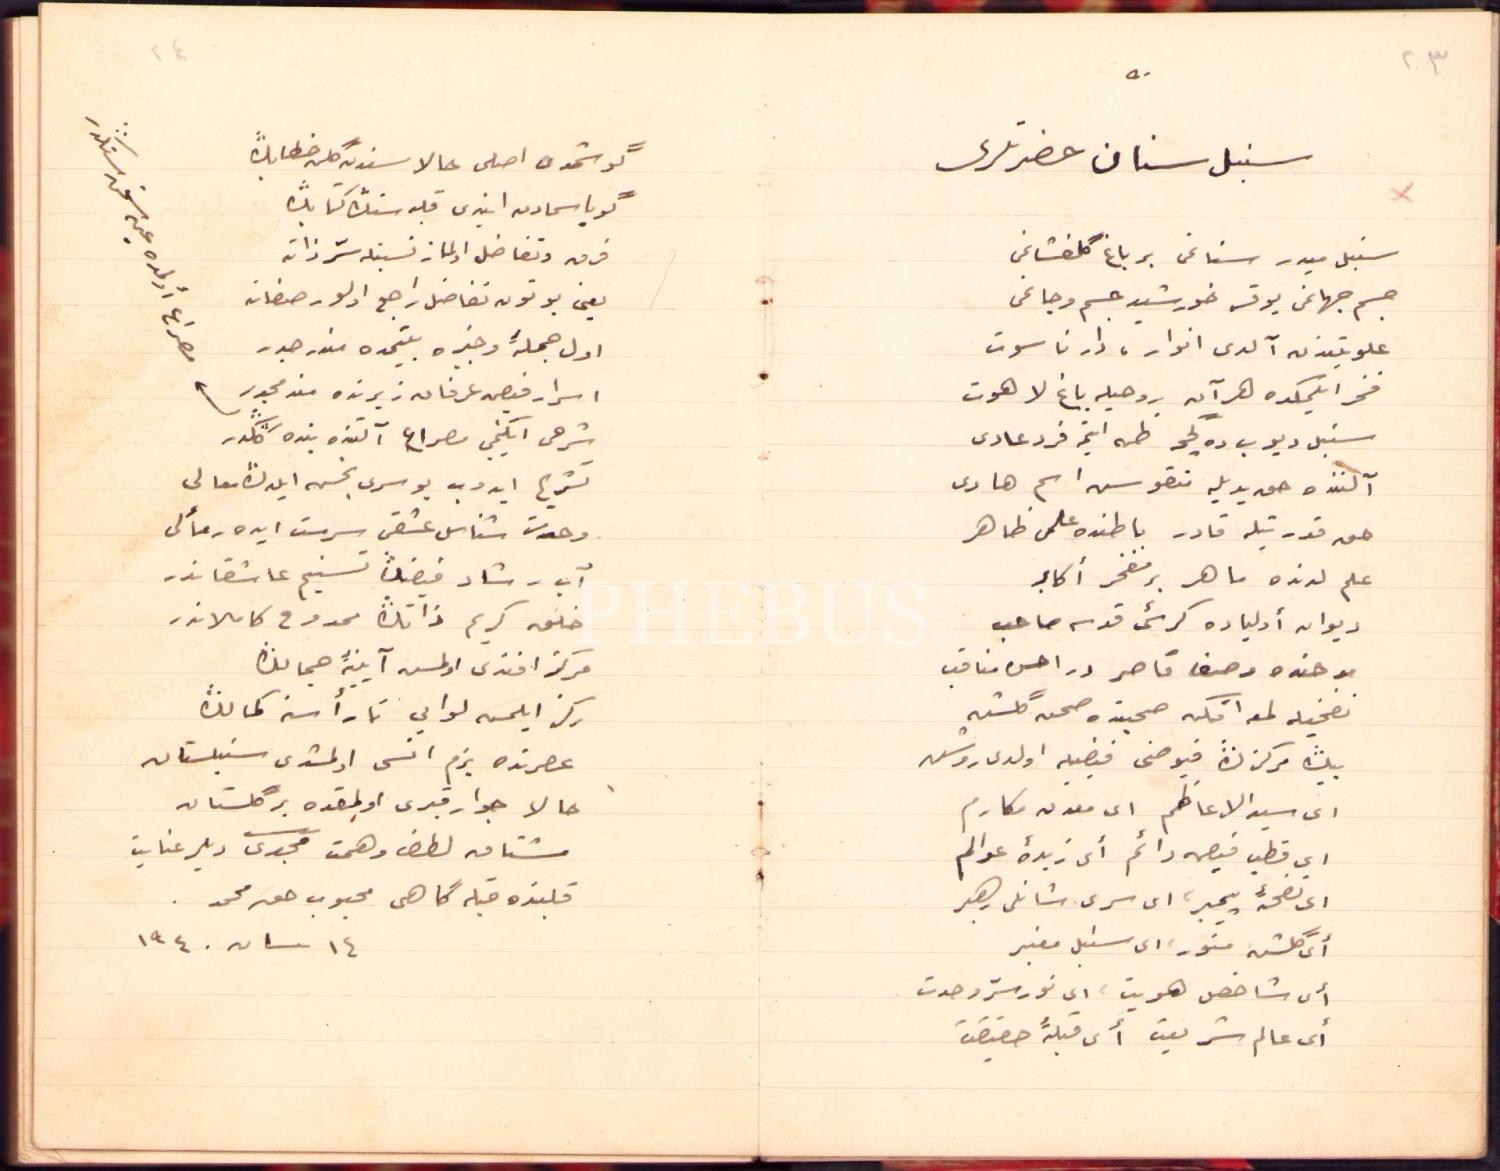 ٢٣
٥٠
سنبل سنان حضرتلری
سنبل میدر سنانمی بر باغ گلفشانمی
جسم جهانمی یوقسه خورشید جسم وجانمی
علویتیندن آلدی انوار، دار ناسوت
فخر ایلیکده هر آن روحیله باغ لاهوت
سنبل دیوب ده گچمه ظن ایتمه فرد عادی
آلنده حق یدیله منقوش اسم هادی
حق قدرتیله قادر باطنده علمی ظاهر
علم لدنده ماهر بر مفخر أکابر
دیوان أولیاده کرسئ قدسه صاحب
وصف قاصر در مناقب
نفخیله لمعه افکن صحن گلشن
پیرڭ مرکزڭ فیوضی فیضیله اولدی روشن
ای سید الاعاظم ای معدن مکارم
ای قطب فیض دائم أی زبدۀ عوالم
ای نفحۀ پیمبر، ای سری شانلی رهبر
أی گلشن منور، ای سنبل معنبر
أی شاخص هویت، ای نور سرّ وحدت
أی عالم شریعت أی قبلۀ حقیقت
٢٤
گوشمده اصلی حالا سندن گلن خطابڭ
گویا سمادن ایندی قلبه سنڭ کتابڭ
فرق وتفاضل اولماز نسبتله سرّ ذاته
یعنی بوتون تفاضل راجع اولور صفاته
اول جملۀ وجیزه بیتمده مندرجدر
اسرار فیض عرفان زیرنده مندمجدر
شرحی ایکنجی مصراع آلتنده بنده
تشریح ایدوب بو سری بخش ایلدڭ معالی
وحدت شناس عشقی سرمست ایده رمألی
آب رشاد فیضڭ تسنیم عاشقاندر
خلق کریم ذاتڭ ممدوح کاملاندر
مرکز افندی اولمش آیینۀ جمالڭ
رکز ایلمش لوایی تا رأسنه کمالڭ
عصرنده بزم انسی اولمشدی سنبلستان
حالا جوار قبری اولمقده بر گلستان
مشتاق لطف وهمت مجدی دیلر عنایت
قلبنده قبله گاهی محبوب حق محمد
١٤ نیسان ١٩٤٠
مصرع أولده